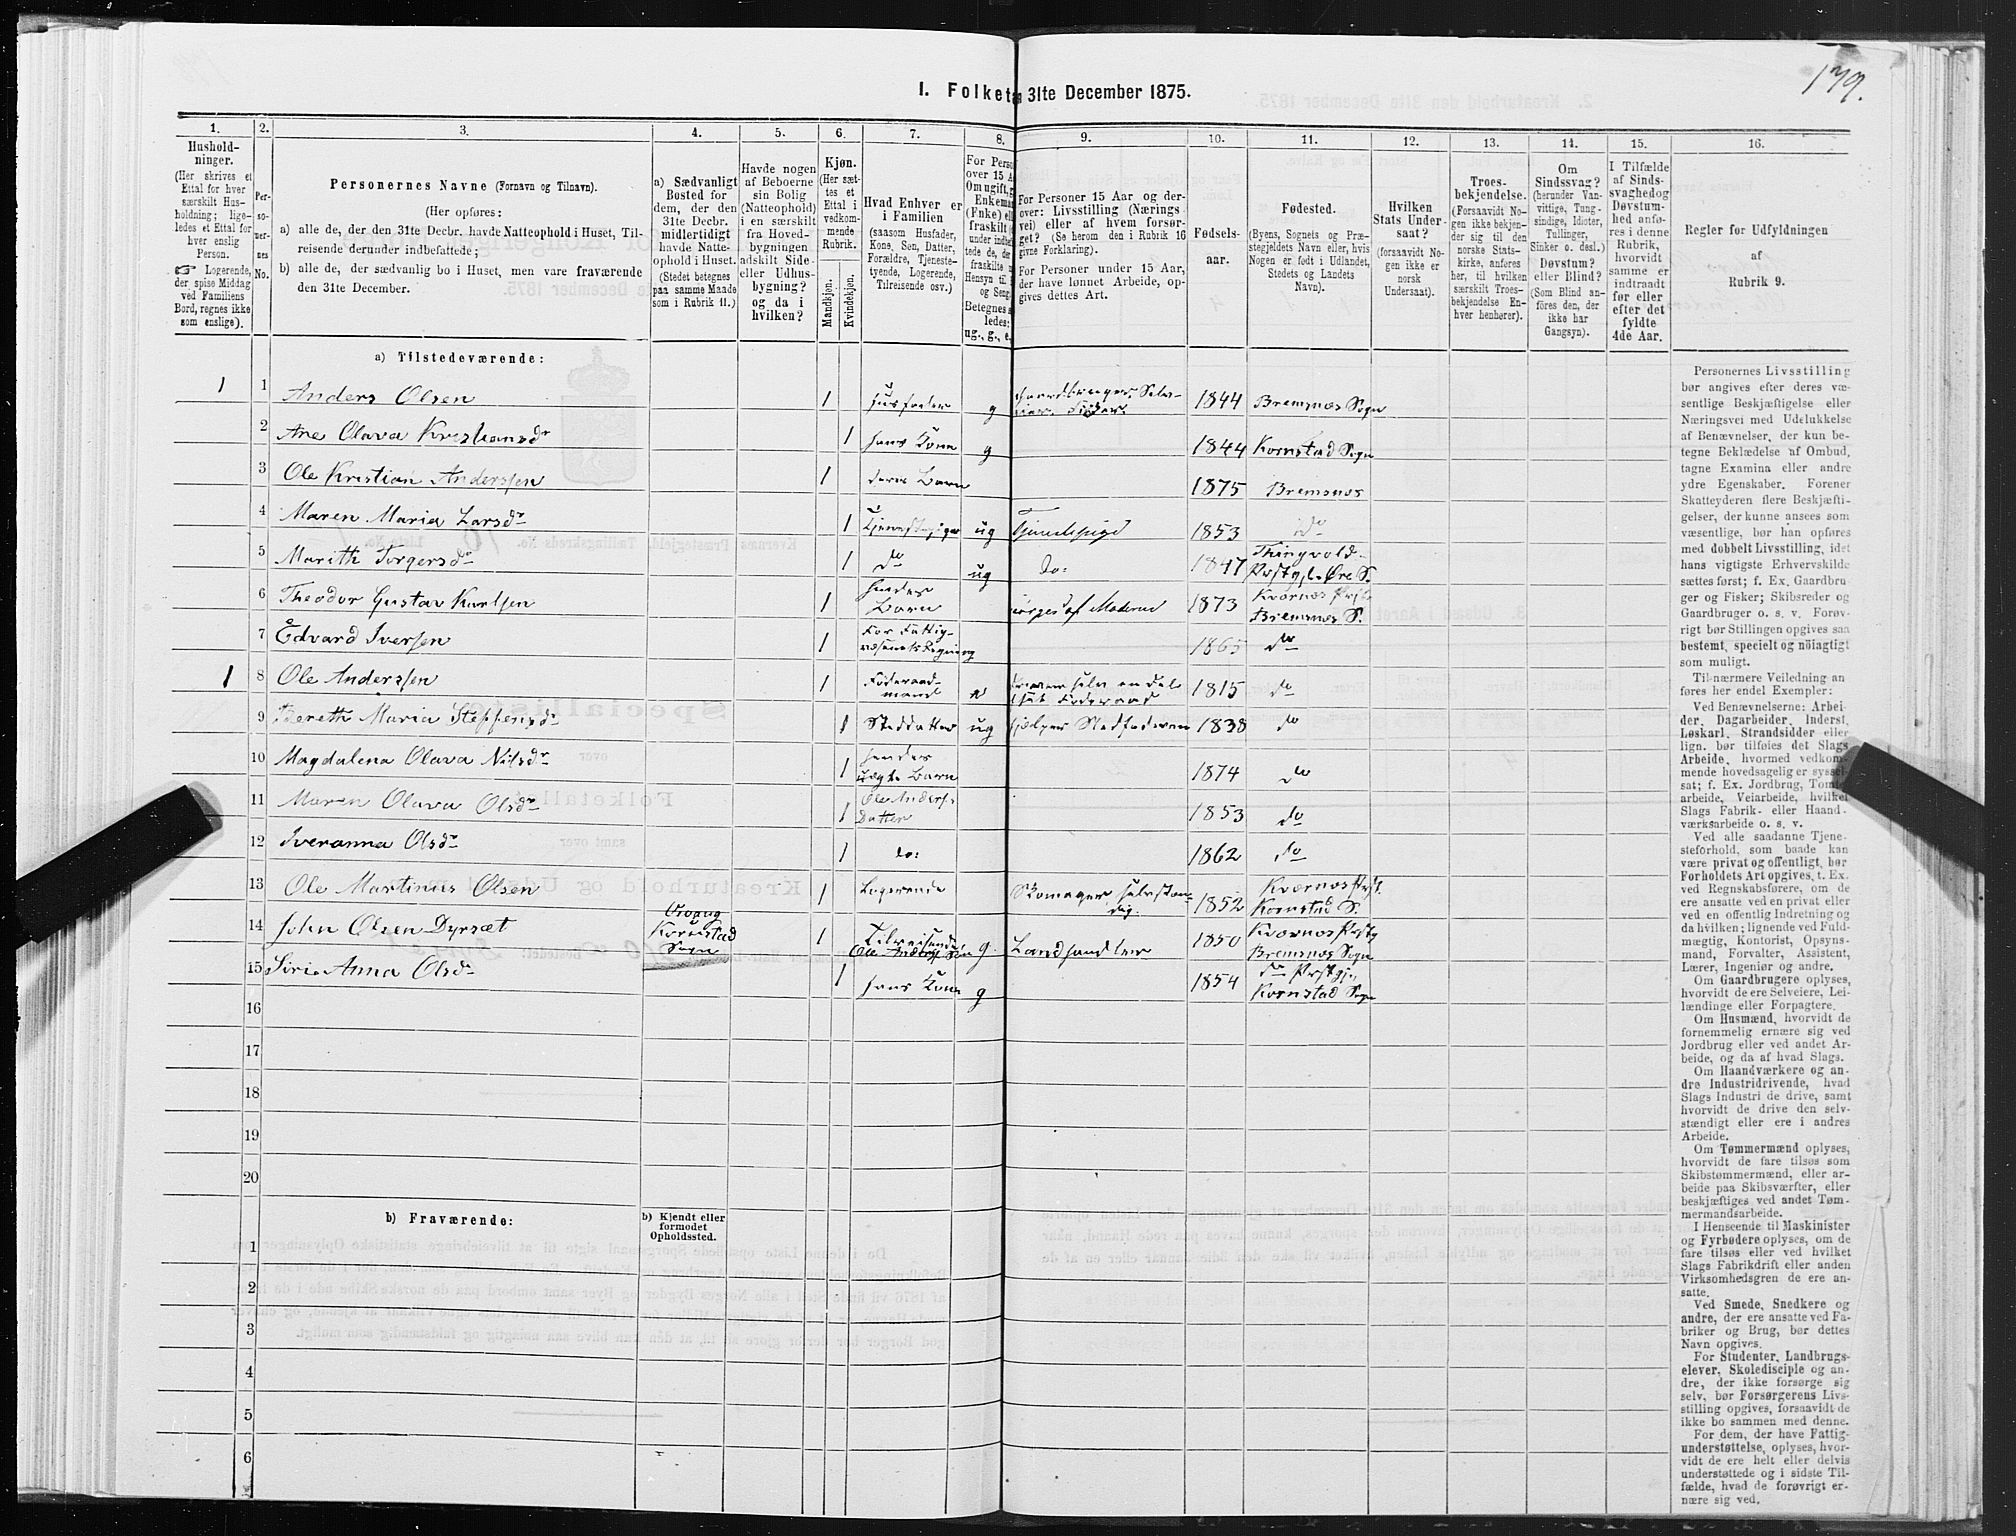 179.
I. Folketa 31te December 1875.
1. 2. 3. 4. 5. 6. 7. 8. 9. 10. 11. 12. 13. 14. 15. 16.
Hushold-
ninger.
(Her skrives et
Ettal for hver
særskilt Hus-
holdning; lige-
ledes et Ettal for
hver enslig
Person.
☞ Logerende,
der spise Middag
ved Familiens
Bord, regnes ikke
som enslige).
Per-
so-
ner-
nes
No.
Personernes Navne (Fornavn og Tilnavn).
(Her opføres:
a) alle de, der den 31te Decbr. havde Natteophold i Huset, Til-
reisende derunder indbefattede;
b) alle de, der sædvanlig bo i Huset, men vare fraværende
den 31te December.
a) Sædvanligt
Bosted for
dem, der den
31te Decbr.
midlertidigt
havde Natte-
ophold i Huset.
(Stedet betegnes
paa samme Maade
som i Rubrik 11.)
Havde nogen
af Beboerne
sin Bolig
(Natteophold)
i en særskilt
fra Hoved-
bygningen
adskilt Side-
eller Udhus-
bygning?
og da i
hvilken?
Kjøn.
(Her sæt-
tes et
Ettal i
vedkom-
mende
Rubrik.)
Mandkjøn.
Kvindekjøn.
Hvad Enhver er
i Familien
(saasom Husfader,
Kone, Søn, Datter,
Forældre, Tjeneste-
tyende, Logerende,
Tilreisende osv.)
For Perso
over 15 A
Om ugift, g
Enkema
(Fnke) ell
fraskilt
under indbef
tede de, de
fraskilte
Hensyn til
og Seng
Betegnes s
ledes:
ug., g., e.
For Personer 15 Aar og der-
over: Livsstilling (Nærings
vei) eller af hvem forsør-
get? (Se herom den i Rubrik 16
givne Forklaring).
For Personer under 15 Aar,
der have lønnet Arbeide, op-
gives dettes Art.
Fødsels-
aar.
Fødested.
(Byens, Sognets og Præ-
stegjeldets Navn eller, hvis
Nogen er født i Udlandet,
Stedets og Landets
Navn).
Hvilken
Stats Under-
saat?
(forsaavidt No-
gen ikke er
norsk
Undersaat).
Troes-
bekjendelse.
(Forsaavidt No-
gen ikke bekjen-
der sig til den
norske Stats-
kirke, anføres
her, til hvilken
særskilt Troes-
bekjendelse En-
hver henhører).
Om
Sindssvag?
(herunder Van-
vittige, Tung-
sindige, Idioter,
Tullinger,
Sinker o. desl.)
Døvstum?
eller Blind?
(Som Blind an-
føres den, der
ikke har
Gangsyn).
I Tilfælde
af Sinds-
svaghed og
Døvstum-
hed anfø-
res i denne
Rubrik,
hvorvidt
samme er
indtraadt
før eller
efter det
fyldte
4de Aar.
Regler for Udfyldningen
af
Rubrik 9.
a) Tilstedeværende:
1 1 Anders Olsen 1 Husfader g Selv-
eier. Fisker. 1844 Bremsnæs Sogn
2 Ane Olava Kristiansdr 1 hans Kone g 1844 Kornstad Sogn
3 Ole Kristian Anderssen 1 deres Barn 1875 Bremsnæs
4 Maren Maria Larsdr 1 ug Tjenestepige 1853 do
5 Marith Torgersdr 1 do ug do: 1847 Thingvold
Prstgj. Øre S.
6 Theodor Gustav Karlsen 1 hendes
Barn sørges af Moderen 1873 Kværnæs Prst
Bremsnæs S.
7 Edvard Iversen 1 For Fattig-
væsenets Regning 1865 do
1 8 Ole Anderssen 1 Føderaad-
mand e 1815 do
9 Bereth Maria Steffensdr 1 Steddatter ug hjælper Stedfaderen 1838 do
10 Magdalena Olava Nilsdr 1 hendes
uægte Barn 1874 do
11 Maren Olava Olsdr 1 Ole Anders.
Datter 1853 do
12 Iveranna Olsdr 1 do: 1862 do
13 Ole Martinus Olsen 1 Logerende Skomager selvstæn-
dig. 1852 Kværnæs Prst.
Kornstad S.
14 John Olsen Dyrsæt Kornstad
Sogn 1 Tilreisende
Ole Anderss Søn g. Landhandler 1850 Kværnæs Prstg
Bremsnæs Sogn
15 Siri Anna Olsdr 1 hans Kone g 1854 do Prstgj.
Kornstad Sogn
16
17
18
19
20
b) Fraværende:
b) Kjendt eller
formodet
Opholdssted.
1
2
3
4
5
6
Personernes Livsstilling
bør angives efter deres væ-
sentlige Beskjæftigelse eller
Næringsvei med Udelukkelse
af Benævnelser, der kun be-
tegne Beklædelse af Ombud,
tagne Examina eller andre
ydre Egenskaber. Forener
Skatteyderen flere Beskjæfti-
gelser, der kunne ansees som
væsentlige, bør han opføres
med dobbelt Livsstilling, idet
hans vigtigste Erhvervskilde
sættes først; f. Ex. Gaardbru-
ger og Fisker; Skibsreder og
Gaardbruger o. s. v. Forøv-
rigt bør Stillingen opgives saa
bestemt, specielt og nöiagtigt
som muligt.
Til nærmere Veiledning an-
føres her endel Exempler:
Ved Benævnelserne: Arbei-
der, Dagarbeider, Inderst,
Løskarl, Strandsidder eller
lign. bør tilføies det Slags
Arbeide, hvormed vedkom-
mende hovedsagelig er syssel-
sat; f. Ex. Jordbrug, Tomte-
arbeide, Veiarbeide, hvilket
Slags Fabrik- eller Haand-
værksarbeide o. s. v.
Ved alle saadanne Tjene-
steforhold, som baade kan
være privat og offentligt, bør
Forholdets Art opgives, t. Ex.
ved Regnskabsførere, om de
ere ansatte ved en privat eller
ved en offentlig Indretning og
da hvilken; lignende ved Fuld-
mægtig, Kontorist, Opsyns-
mand, Forvalter, Assistent,
Lærer, Ingeniør og andre.
Om Gaardbrugere oplyses,
hvorvidt de ere Selveiere, Lei-
lændinge eller Forpagtere.
Om Husmænd, hvorvidt de
fornemmelig ernære sig ved
Jordbrug eller ved andet Ar-
beide, og da af hvad Slags.
Om Haandværkere og an-
dre Industridrivende, hvad
Slags Industri de drive, samt
hvorvidt de drive den selv-
stændigt eller ere i andres
Arbeide.
Om Tømmermænd oplyses,
hvorvidt de fare tilsøs som
Skibstømmermænd, eller ar-
beide paa Skibsværfter, eller
beskjæftiges ved andet Tøm-
mermandsarbeide.
I Henseende til Maskinister
og Fyrbødere oplyses, om de
fare tilsøs eller ved hvilket
Slags Fabrikdrift eller anden
Virksomhedsgren de ere an-
satte.
Ved Smede, Snedkere og
andre, der ere ansatte ved Fa-
briker og Brug, bør dettes
Navn opgives.
For Studenter, Landbrugs-
elever, Skoledisciple og an-
dre, der ikke forsørge sig
selv, bør Forsørgerens Livs-
stilling opgives, forsaavidt de
ikke bo sammen med denne.
For dem, der have Fattig-
understøttelse, oplyses, hvor-
vidt de ere helt eller delvis
understøttede og i sidste Til-
fælde, hvad de forøvrigt er-
nære sig ved.